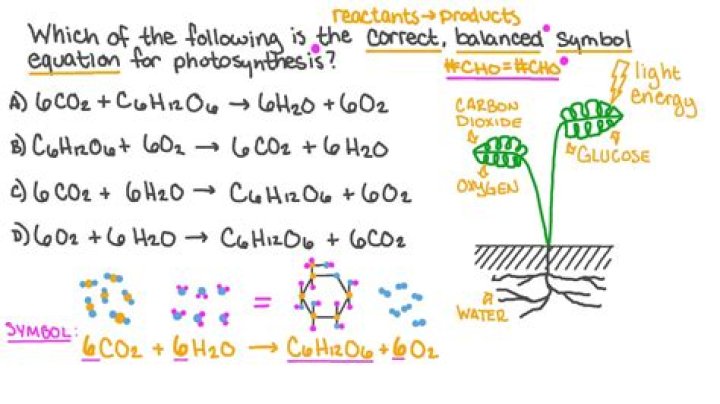 reactants→products
Which of the following is the correct, balanced symbol
equation for photosynthesis?
#CHO=#CHO
A) 6CO₂ + C₆H₁₂O₆ → 6H₂O + 6O₂
B) C₆H₁₂O₆ + 6O₂ → 6CO₂ + 6H₂O
C) 6CO₂ + 6H₂O → C₆H₁₂O₆ + 6O₂
D) 6O₂ + 6H₂O → C₆H₁₂O₆ + 6CO₂
light
energy
CARBON
DIOXIDE
GLUCOSE
OXYGEN
WATER
=
SYMBOL: 6CO₂ + 6H₂O → C₆H₁₂O₆ + 6O₂